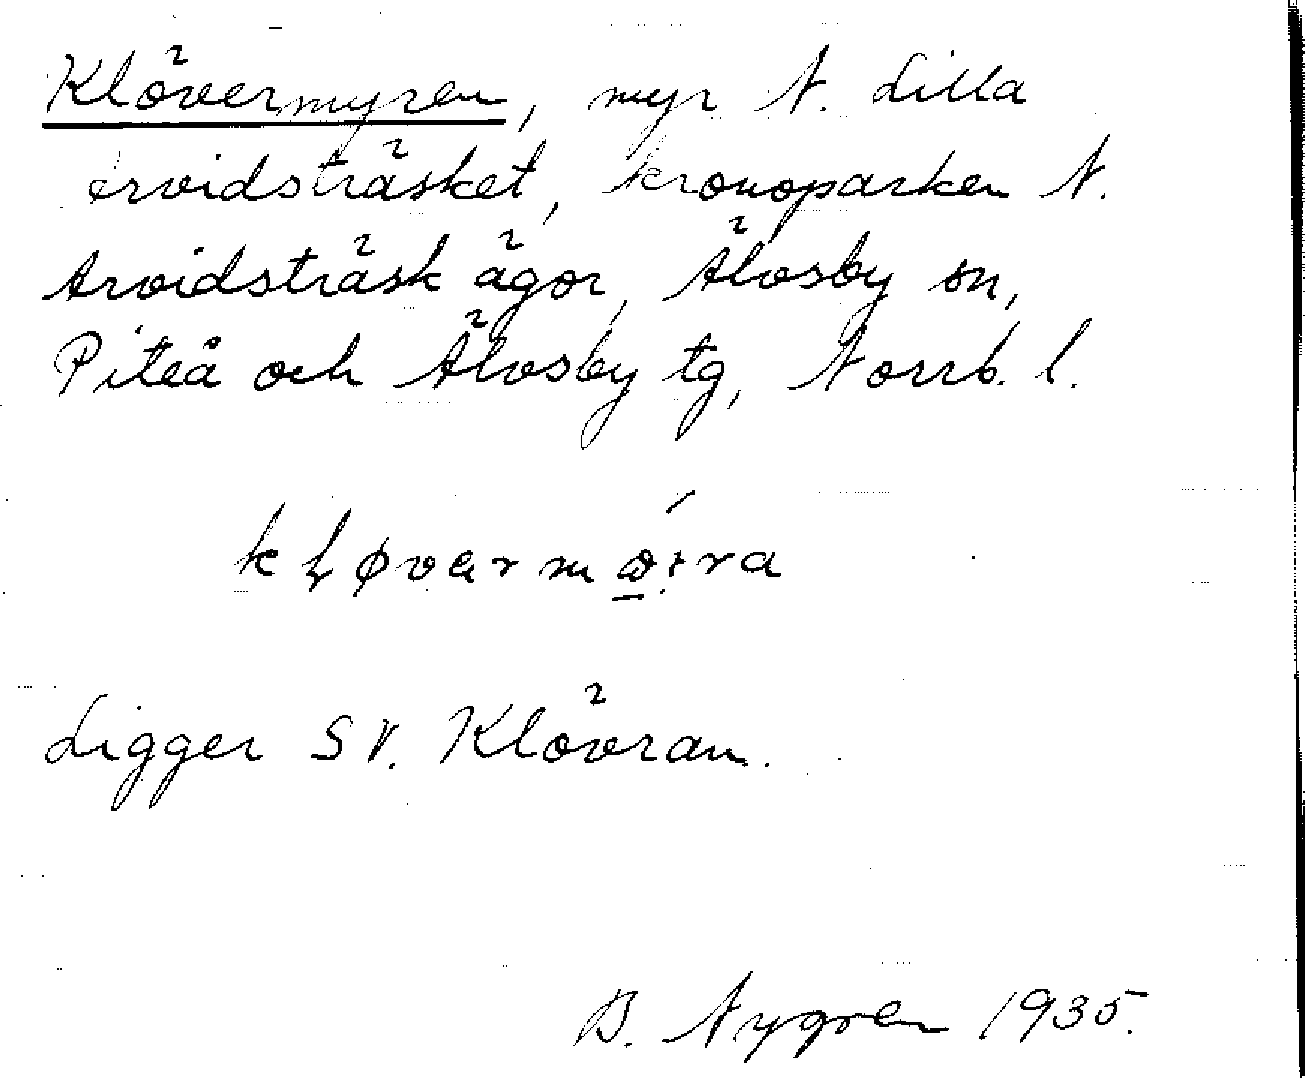 Klövermyren, myr N. Lilla
Arvidsträsket, kronoparken N.
Arvidsträsk ägor, Älvsby sn,
Piteå och Älvsby tg, Norrb. l.
Ligger SV. Klövran.
B. Nygren 1935.